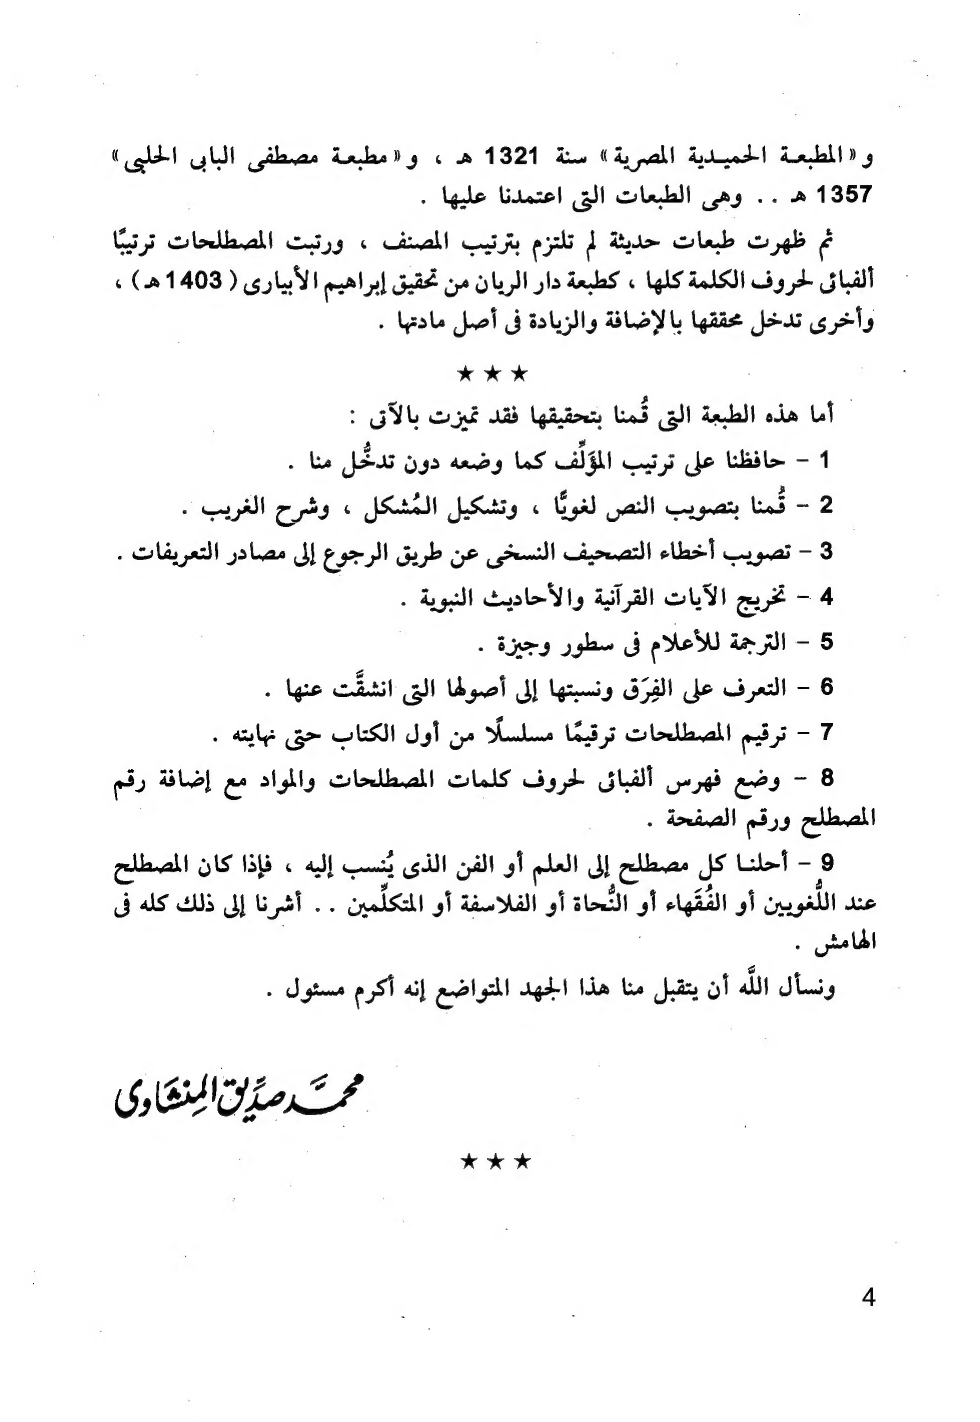 و «المطبعـة الحميـدية المصرية» سنة 1321 هـ ، و «مطبعـة مصطفى البابى الحلبى»
1357 هـ .. وهى الطبعات التى اعتمدنا عليها .
ثم ظهرت طبعات حديثة لم تلتزم بترتيب المصنف ، ورتبت المصطلحات ترتيبًا
ألفبائى لحروف الكلمة كلها ، كطبعة دار الريان من تحقيق إبراهيم الأبيارى ( 1403 هـ ) ،
وأخرى تدخل محققها بالإضافة والزيادة فى أصل مادتها .
★ ★ ★
أما هذه الطبعة التى قُمنا بتحقيقها فقد تميزت بالآتى :
1 – حافظنا على ترتيب المؤلِّف كما وضعه دون تدخُّل منا .
2 – قُمنا بتصويب النص لغويًّا ، وتشكيل المُشكل ، وشرح الغريب .
3 – تصويب أخطاء التصحيف النسخى عن طريق الرجوع إلى مصادر التعريفات .
4 – تخريج الآيات القرآنية والأحاديث النبوية .
5 – الترجمة للأعلام فى سطور وجيزة .
6 – التعرف على الفِرَق ونسبتها إلى أصولها التى انشقَّت عنها .
7 – ترقيم المصطلحات ترقيمًا مسلسلًا من أول الكتاب حتى نهايته .
8 – وضع فهرس ألفبائى لحروف كلمات المصطلحات والمواد مع إضافة رقم
المصطلح ورقم الصفحة .
9 – أحلنـا كل مصطلح إلى العلم أو الفن الذى يُنسب إليه ، فإذا كان المصطلح
عند اللُّغويين أو الفُقَهاء أو النُّحاة أو الفلاسفة أو المتكلِّمين .. أشرنا إلى ذلك كله فى
الهامش .
ونسأل اللَّه أن يتقبل منا هذا الجهد المتواضع إنه أكرم مسئول .
محمـَّد صدِّيق المِنشَاوى
★ ★ ★
4